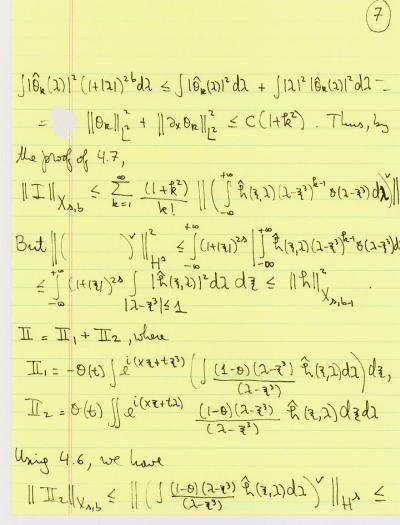 7
∫|θ̂ₖ(λ)|² (1+|λ|)^{2b} dλ ≤ ∫|θ̂ₖ(λ)|² dλ + ∫|λ|² |θ̂ₖ(λ)|² dλ =
= ‖θₖ‖²_{L²} + ‖∂ₓθₖ‖²_{L²} ≤ C(1+k²). Thus, by
the proof of 4.7,
‖I‖_{X_{s,b}} ≤ ∑_{k=1}^{∞} (1+k²)/k! ‖(∫_{-∞}^{+∞} ĥ(ξ,λ)(λ-ξ³)^{k-1} θ(λ-ξ³) dλ)^∨‖
But ‖( )^∨‖²_{H^s} ≤ ∫_{-∞}^{+∞} (1+|ξ|)^{2s} |∫_{-∞}^{+∞} ĥ(ξ,λ)(λ-ξ³)^{k-1} θ(λ-ξ³) d
≤ ∫_{-∞}^{+∞} (1+|ξ|)^{2s} ∫_{|λ-ξ³|≤1} |ĥ(ξ,λ)|² dλ dξ ≤ ‖h‖²_{X_{s,b-1}}.
II = II₁ + II₂, where
II₁ = -θ(t) ∫ e^{i(xξ+tξ³)} (∫ (1-θ)(λ-ξ³)/(λ-ξ³) ĥ(ξ,λ) dλ) dξ,
II₂ = θ(t) ∬ e^{i(xξ+tλ)} (1-θ)(λ-ξ³)/(λ-ξ³) ĥ(ξ,λ) dξ dλ
Using 4.6, we have
‖II₂‖_{X_{s,b}} ≤ ‖(∫ (1-θ)(λ-ξ³)/(λ-ξ³) ĥ(ξ,λ) dλ)^∨‖_{H^s} ≤